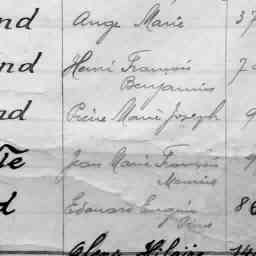 nd Ange Marie 37
nd Henri François 7
Benjamin
nd Pierre Marie Joseph 9
te Jean Marie François 9
Maurice
d Edouard Eugène 86
Alexis Hilaire 14